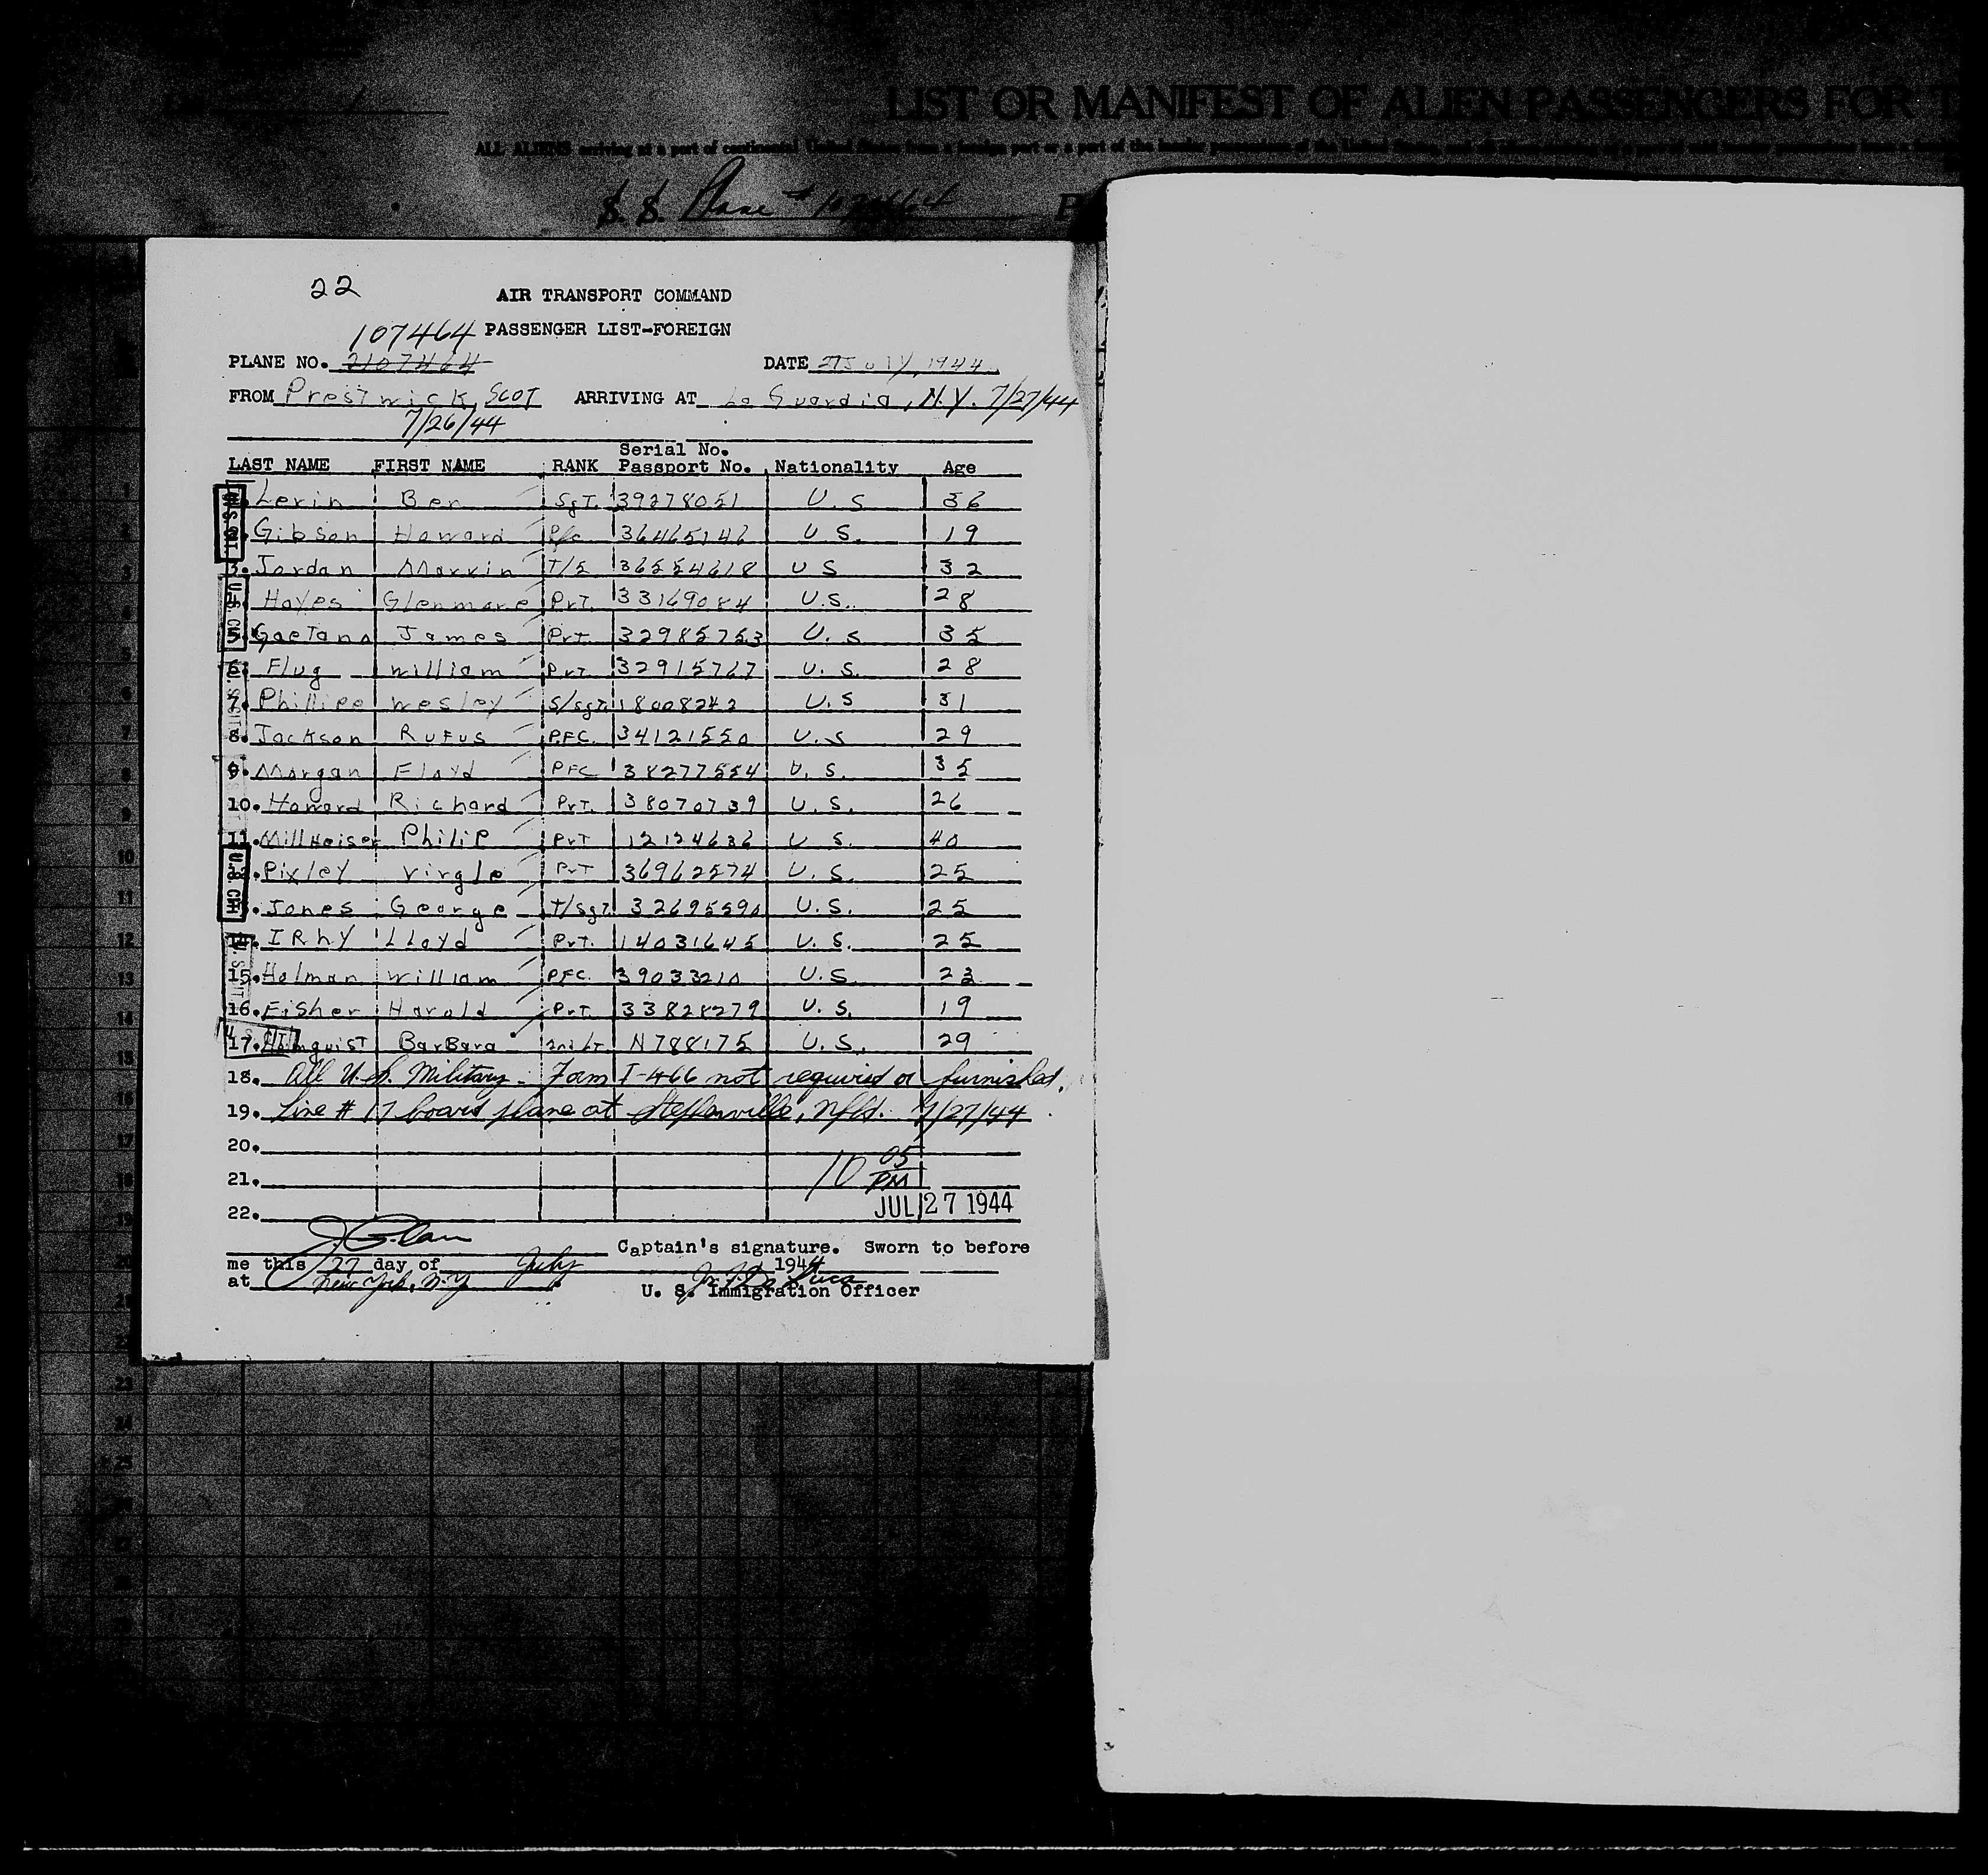 LIST OR MANIFEST OF ALIEN PASSENGERS FOR T
S. S. Plane # 107464
22
AIR TRANSPORT COMMAND
107464 PASSENGER LIST-FOREIGN
PLANE NO. 2107464 DATE 27 July, 1944
FROM Prestwick, SCOT ARRIVING AT La Guardia, N.Y. 7/27/44
7/26/44
Serial No.
LAST NAME FIRST NAME RANK Passport No. Nationality Age
Levin Ben SgT. 39278051 U.S 36
Gibson Howard Pfc 36465146 U.S. 19
3. Jordan Marvin T/5 36554618 US 32
Hayes Glenmore PvT. 33169084 U.S. 28
5. Gaetano James PvT. 32985753 U.S 35
6. Flug William PvT. 32915767 U.S. 28
7. Phillipe Wesley S/SgT. 18008242 U.S 31
8. Jackson Rufus PFC. 34121550 U.S 29
9. Morgan Floyd PFC 38277554 U.S. 35
10. Howard Richard PvT. 38070739 U.S. 26
11. MillHeiser Philip PvT 12124636 U S. 40
Pixley Virgle PvT 36962574 U.S. 25
Jones George T/SgT. 32695590 U.S. 25
14. IRhy LLoyd PvT. 14031645 U.S. 25
15. Holman William PFC. 39033210 U.S. 23
16. Fisher Harold PvT. 33828279 U.S. 19
17. Holmquist BarBara 2nd LT. N788175 U.S. 29
18. All U.S. Military - Form I-466 not required or furnished.
19. Line # 17 board plane at Stephenville, Nfld. 7/27/44
20.
10 05 PM
21.
JUL 27 1944
22.
Captain's signature. Sworn to before
me this 27 day of July 1944
at New York, N.Y.
U. S. Immigration Officer